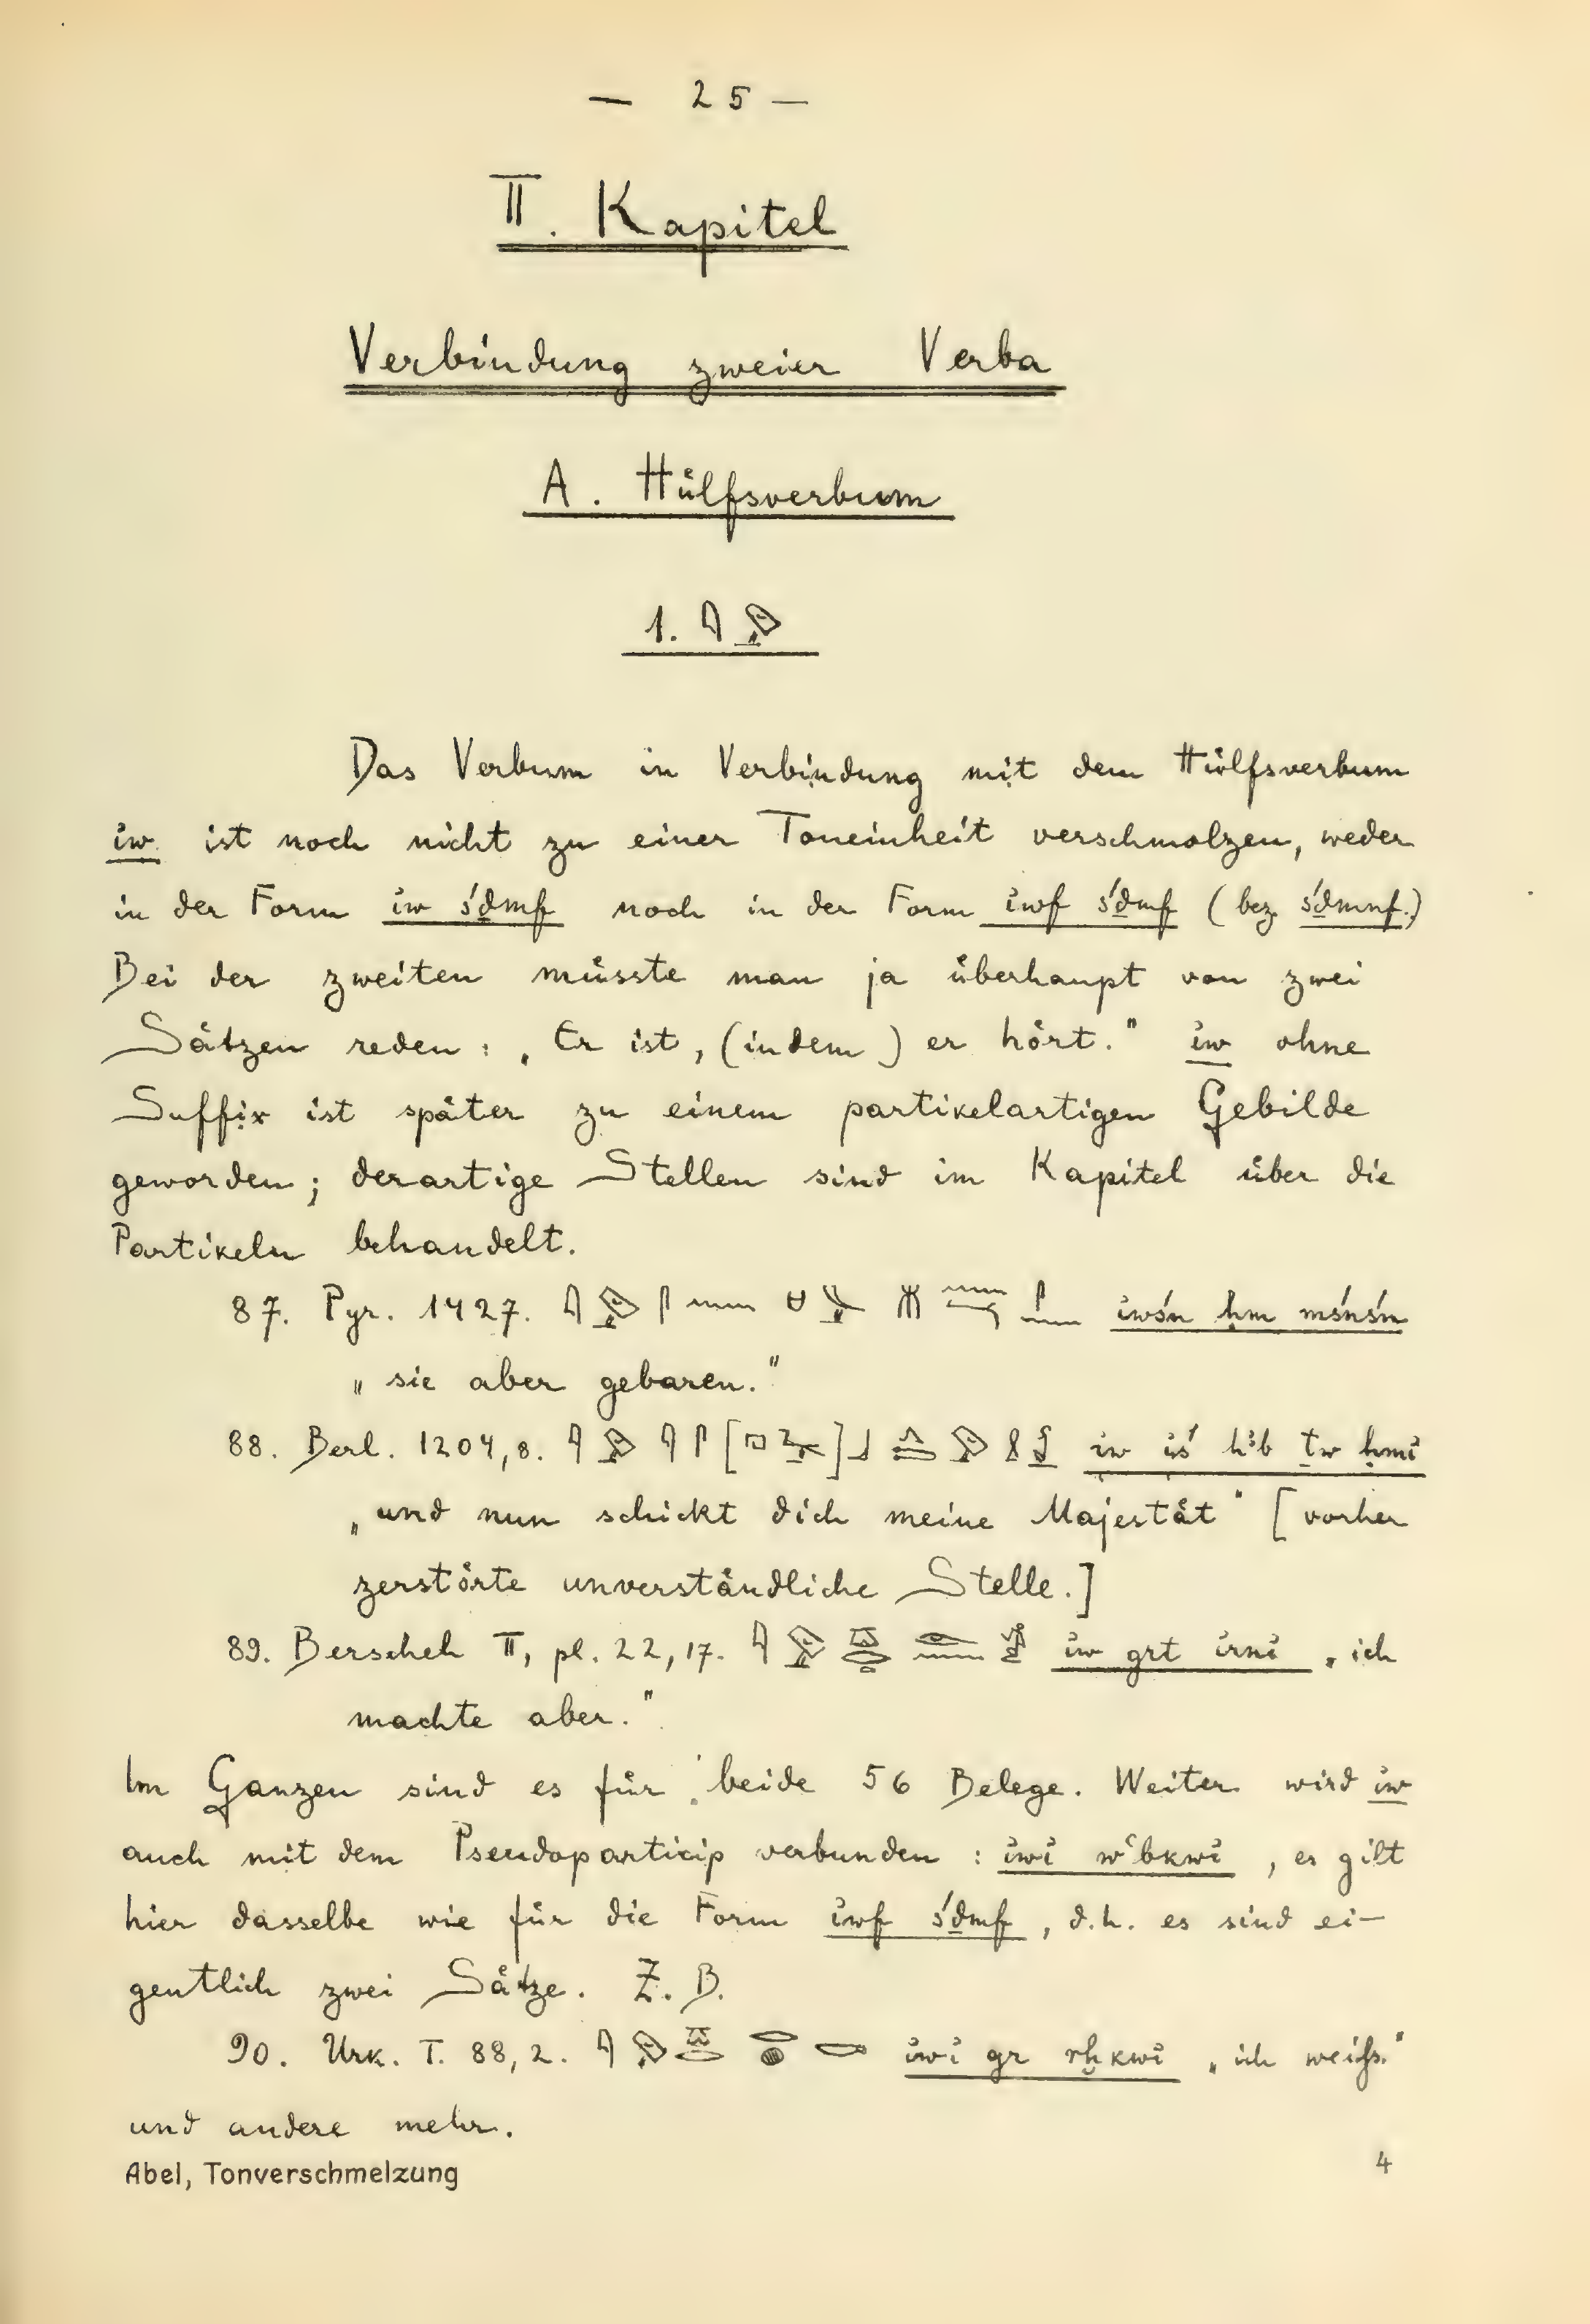 — 25 —
II. Kapitel
Verbindung zweier Verba
A. Hülfsverbum
1. 𓇋𓅱
Das Verbum in Verbindung mit dem Hülfsverbum
ı͗w ist noch nicht zu einer Toneinheit verschmolzen, weder
in der Form ı͗w śḏmf noch in der Form ı͗wf śḏmf (bez. śḏmnf.)
Bei der zweiten müsste man ja überhaupt von zwei
Sätzen reden: „Er ist, (indem) er hört." ı͗w ohne
Suffix ist später zu einem partikelartigen Gebilde
geworden; derartige Stellen sind im Kapitel über die
Partikeln behandelt.
87. Pyr. 1427. ı͗wśn ḥm mśnśn
„sie aber gebaren."
88. Berl. 1204,8. ı͗w ı͗ś hꜣb ṯw ḥmı͗
„und nun schickt dich meine Majestät" [vorher
zerstörte unverständliche Stelle.]
89. Berscheh II, pl. 22,17. ı͗w grt ı͗rnı͗ „ich
machte aber."
Im Ganzen sind es für beide 56 Belege. Weiter wird ı͗w
auch mit dem Pseudoparticip verbunden: ı͗wı͗ wꜥbkwı͗, es gilt
hier dasselbe wie für die Form ı͗wf śḏmf, d.h. es sind ei-
gentlich zwei Sätze. Z. B.
90. Urk. I. 88,2. ı͗wı͗ gr rḫkwı͗ „ich weiß."
und andere mehr.
Abel, Tonverschmelzung 4